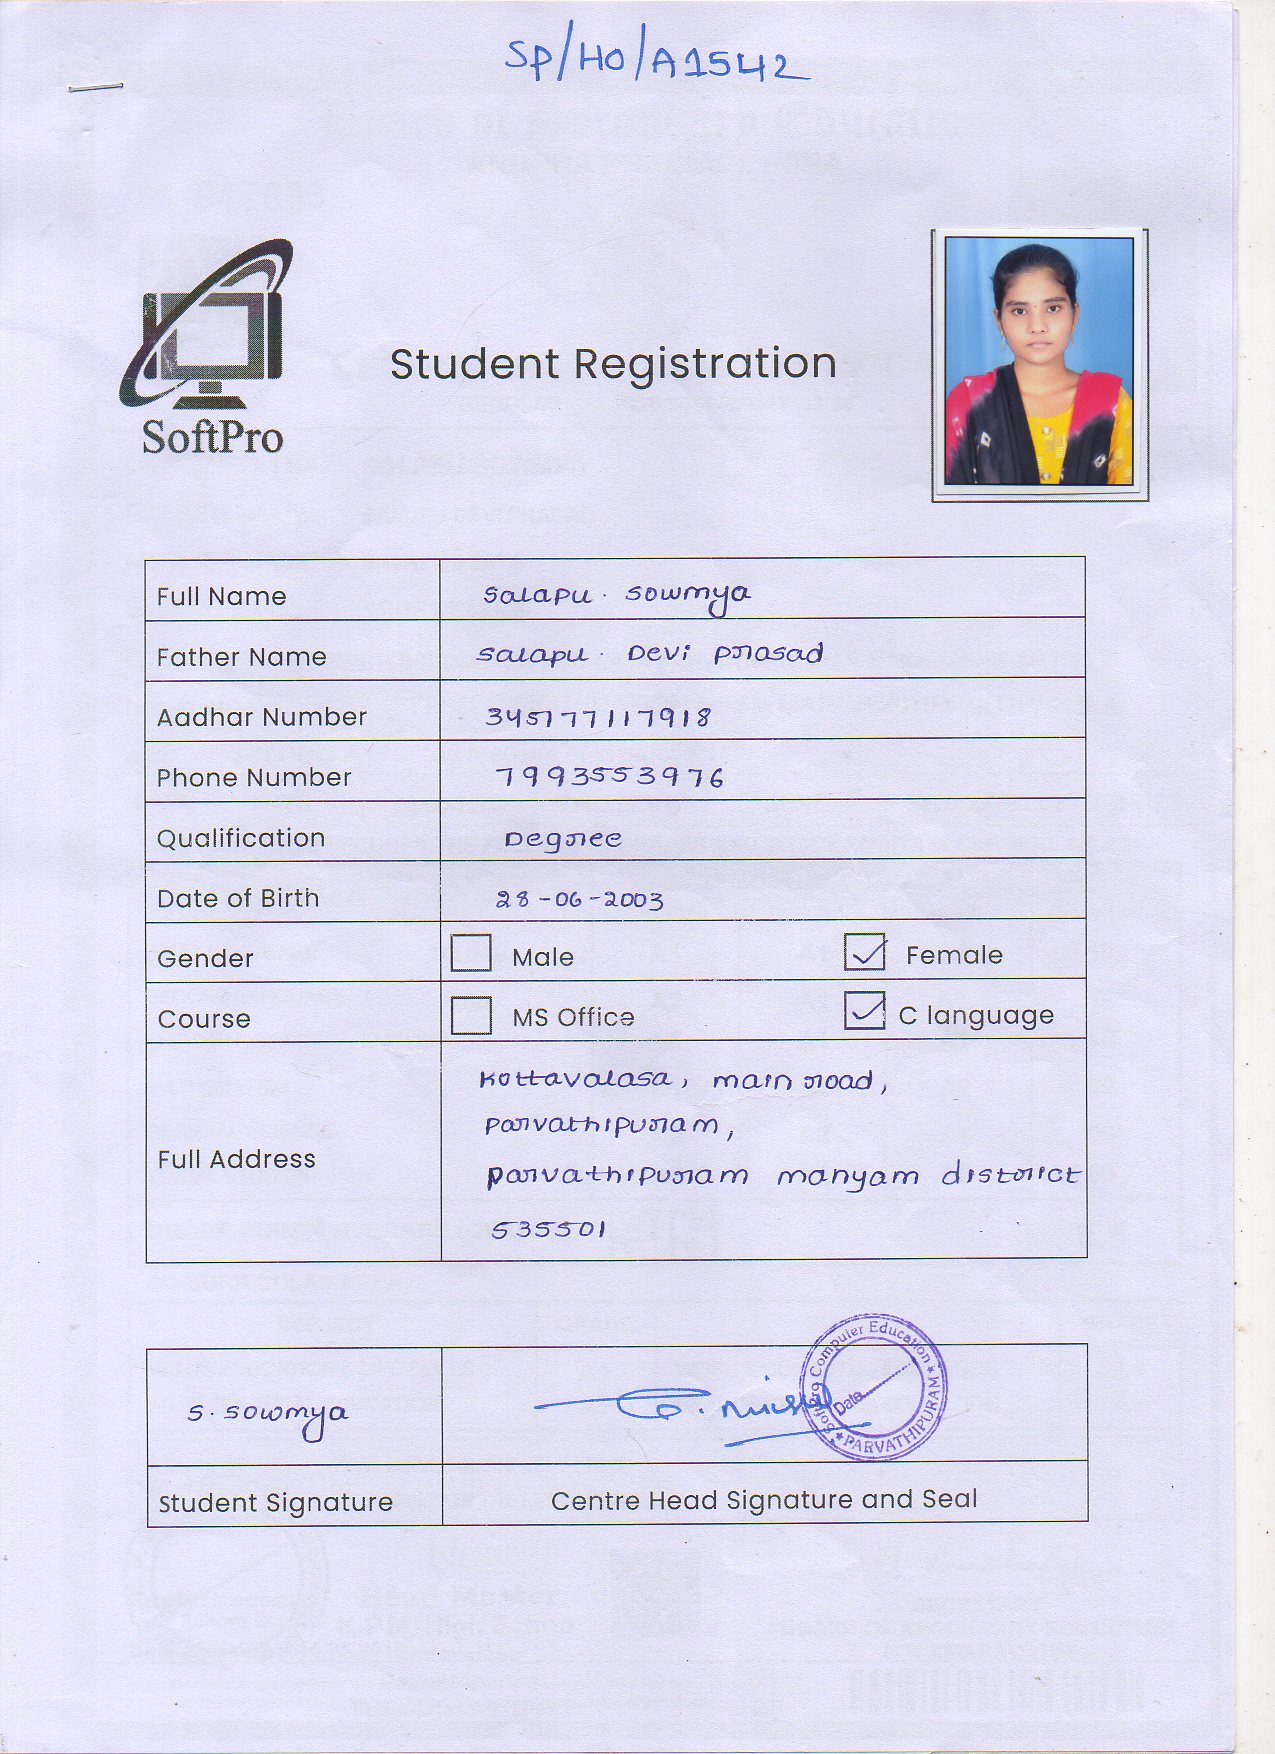 SP/HO/A1542
SoftPro
Student Registration
Full Name Salapu. Sowmya
Father Name Salapu. Devi Prasad
Aadhar Number 345177117918
Phone Number 7993553976
Qualification Degree
Date of Birth 28-06-2003
Gender Male Female
Course MS Office C language
Full Address
Kottavalasa, main road,
parvathipuram,
parvathipuram manyam district
535501
S. Sowmya
SoftPro Computer Education
PARVATHIPURAM
Date
Student Signature Centre Head Signature and Seal